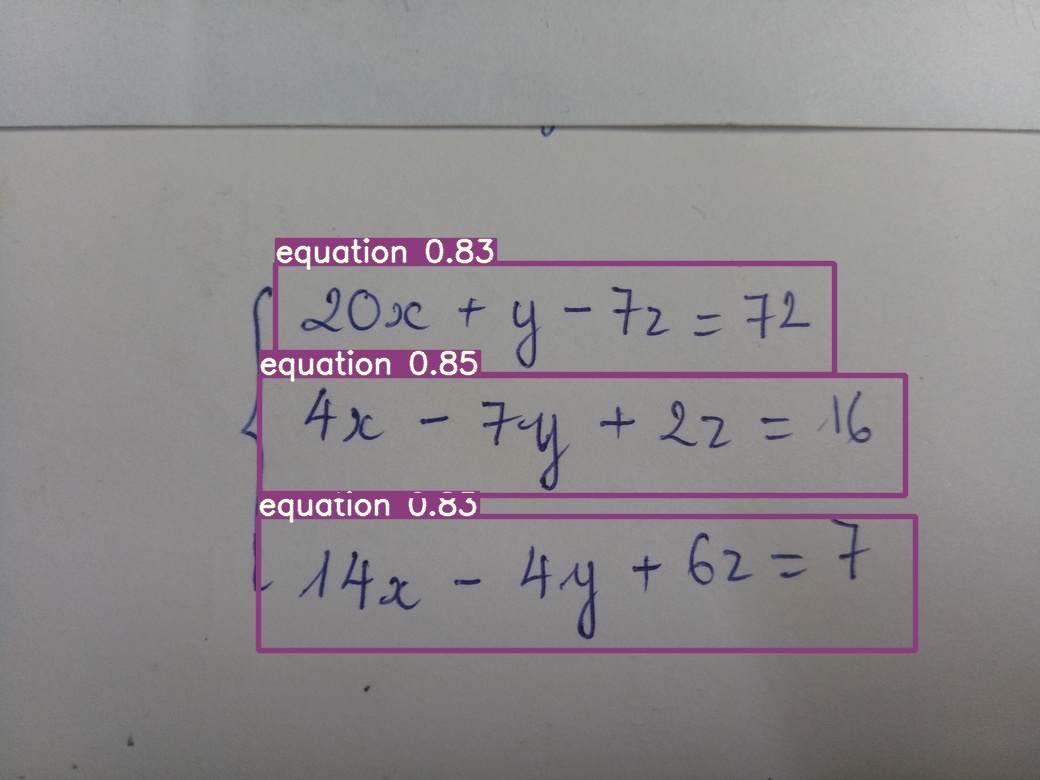 equation 0.83
20x + y - 7z = 72
equation 0.85
4x - 7y + 2z = 16
equation 0.83
14x - 4y + 6z = 7